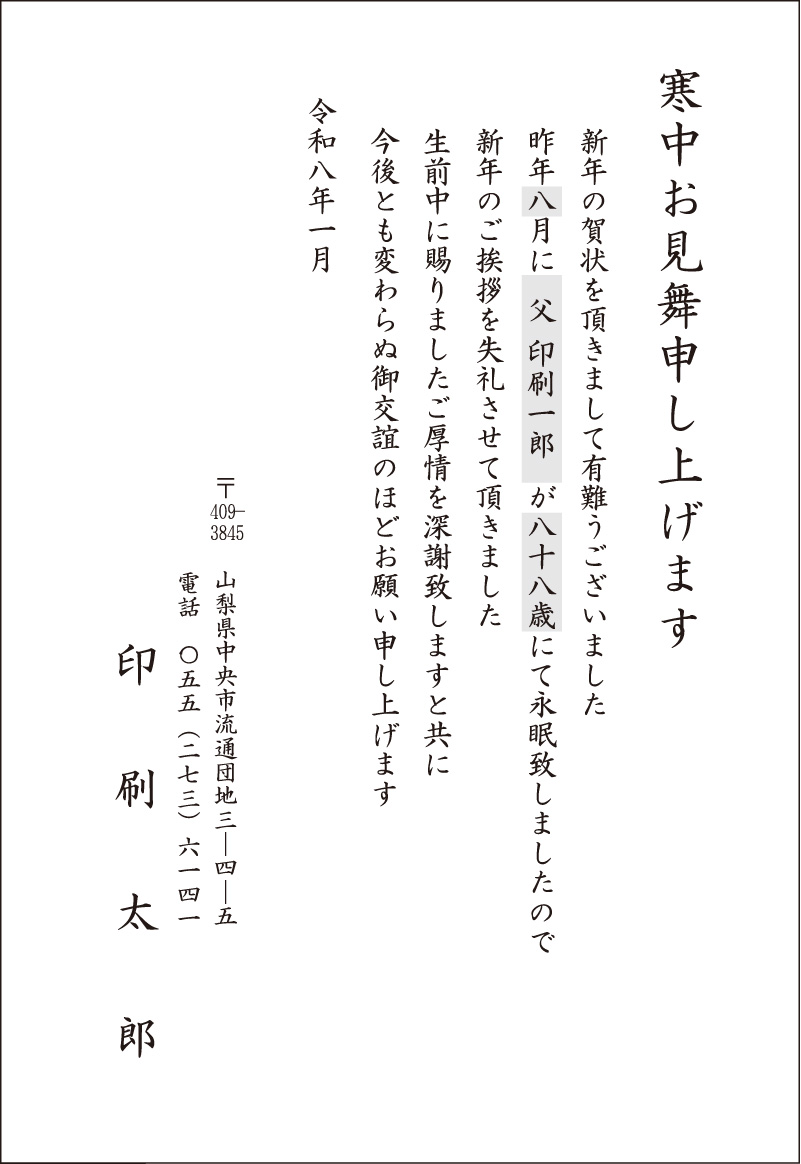 寒中お見舞申し上げます
新年の賀状を頂きまして有難うございました
昨年八月に 父 印刷一郎 が八十八歳にて永眠致しましたので
新年のご挨拶を失礼させて頂きました
生前中に賜りましたご厚情を深謝致しますと共に
今後とも変わらぬ御交誼のほどお願い申し上げます
令和八年一月
〒409-3845
山梨県中央市流通団地三―四―五
電話 〇五五(二七三)六一四一
印刷太郎